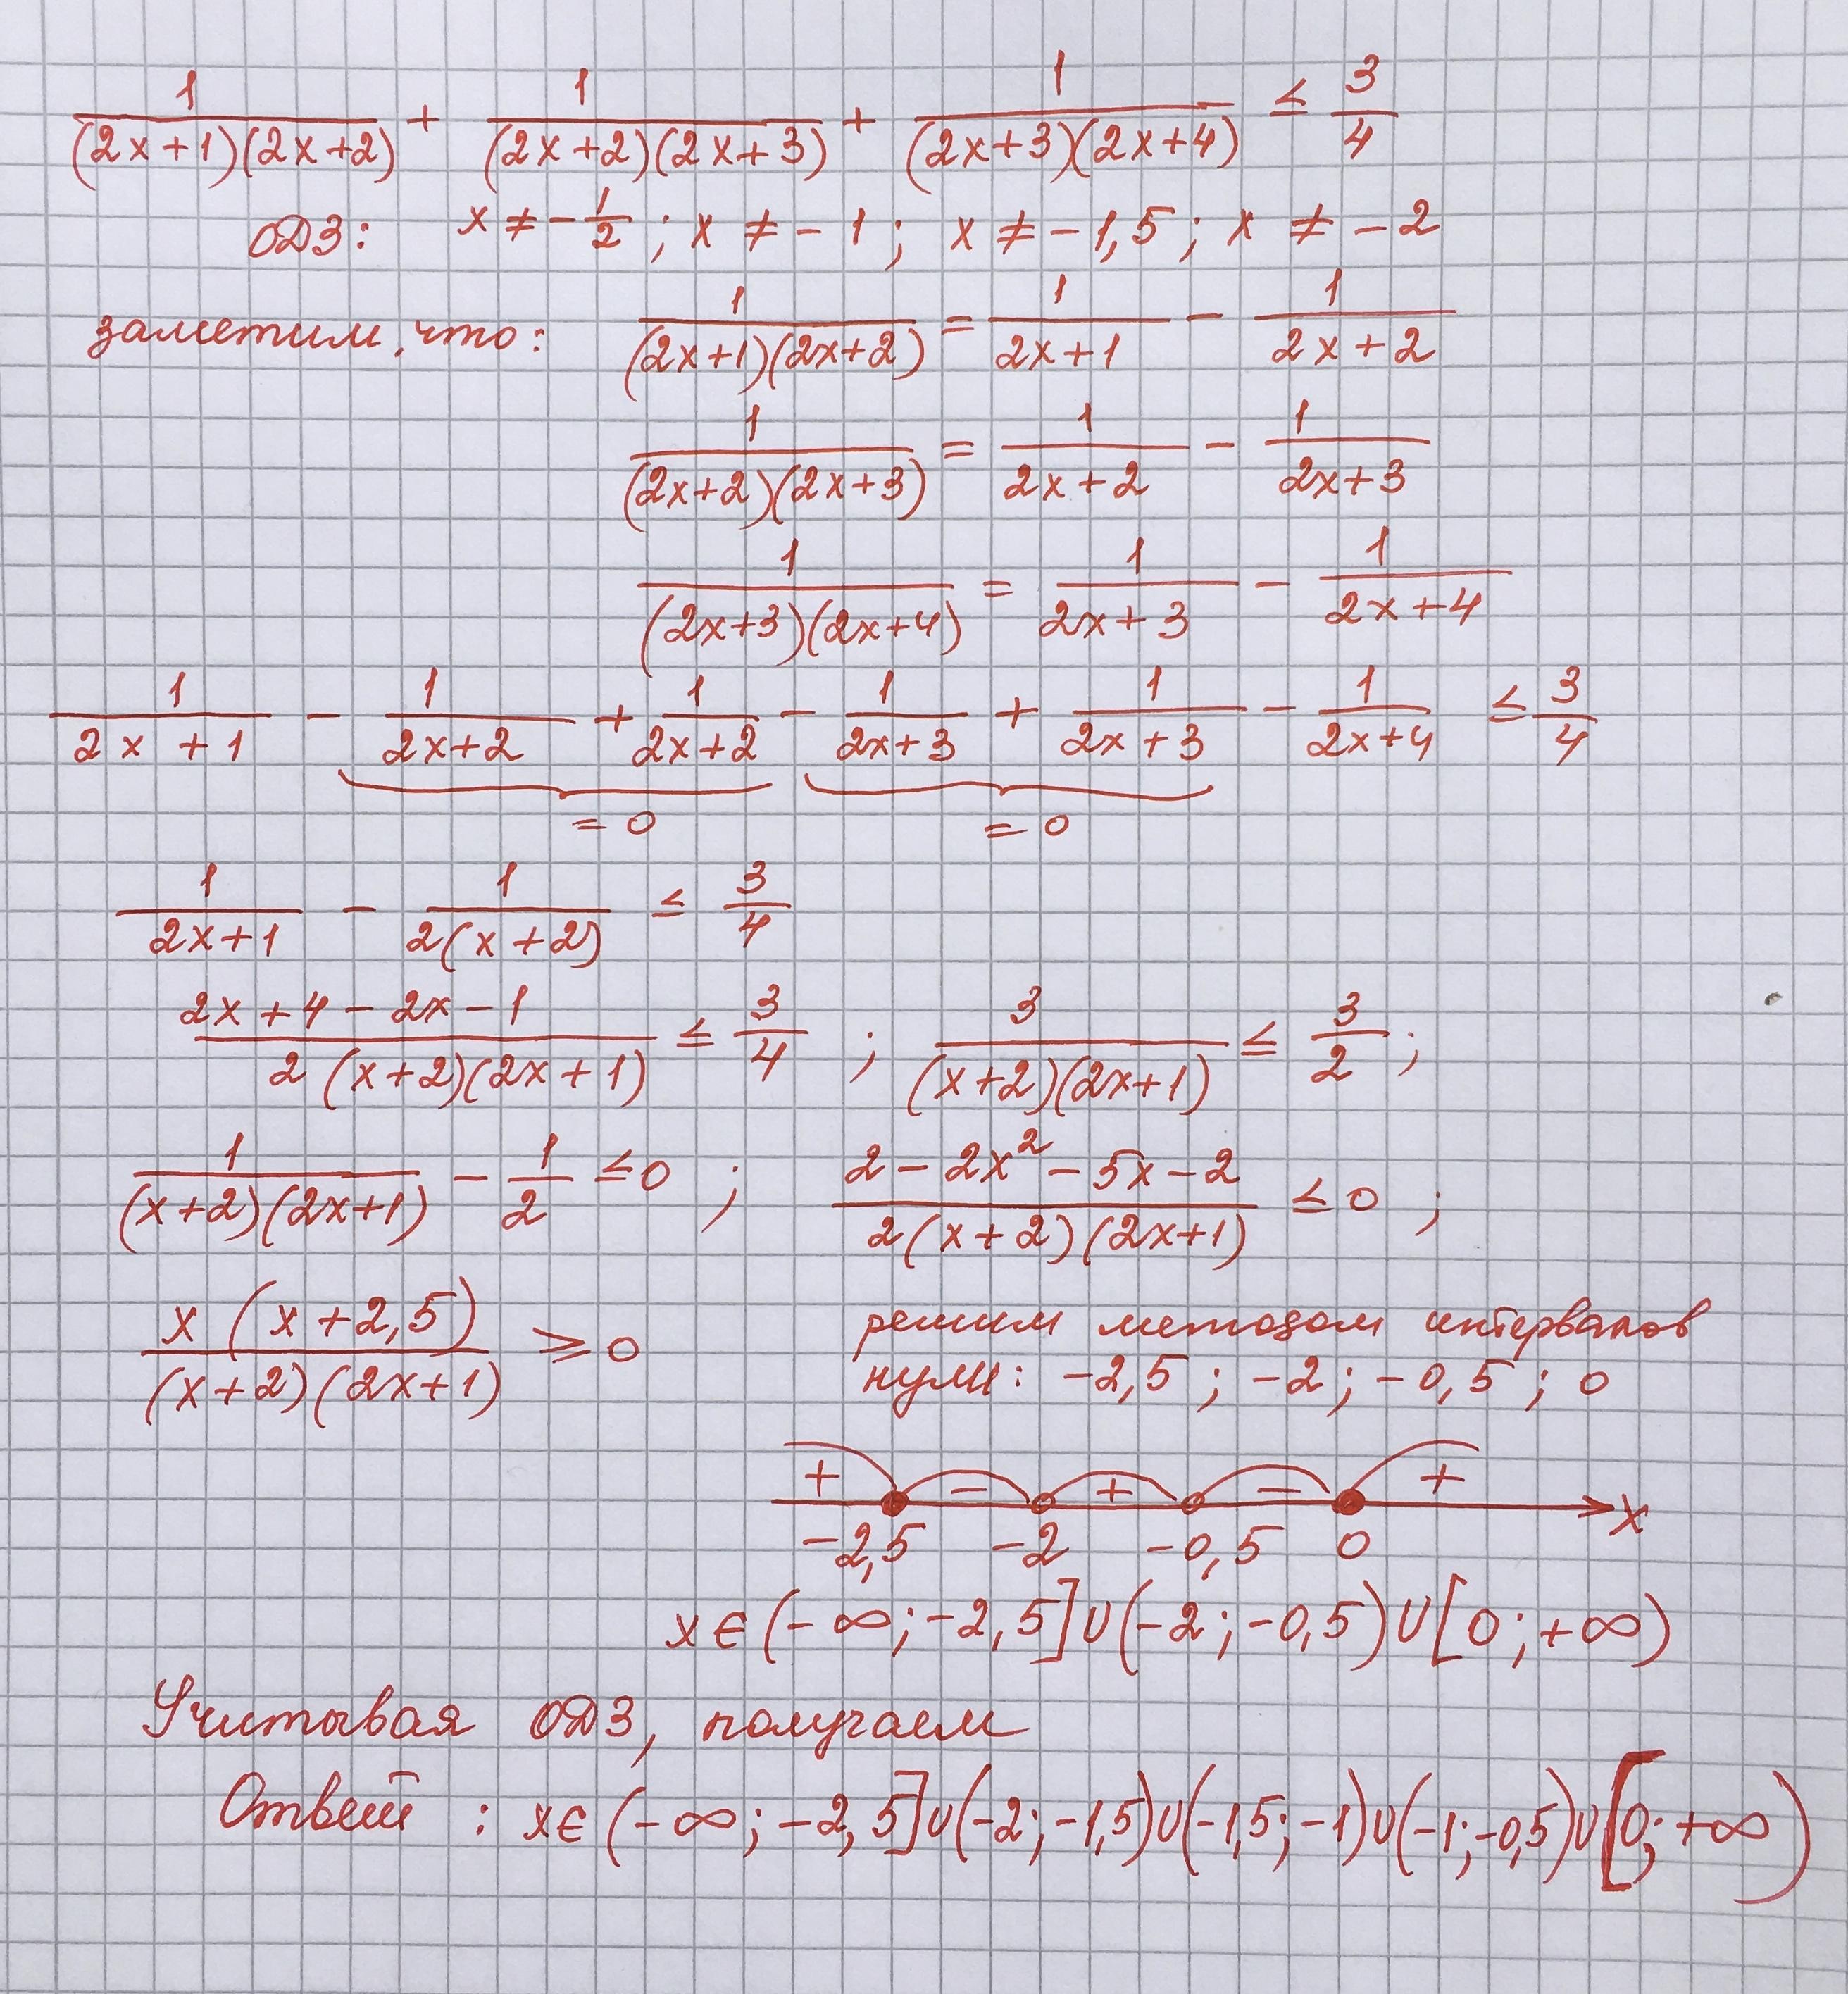 1/((2x+1)(2x+2)) + 1/((2x+2)(2x+3)) + 1/((2x+3)(2x+4)) ≤ 3/4
ОДЗ: x ≠ -1/2 ; x ≠ -1 ; x ≠ -1,5 ; x ≠ -2
заметим, что: 1/((2x+1)(2x+2)) = 1/(2x+1) - 1/(2x+2)
1/((2x+2)(2x+3)) = 1/(2x+2) - 1/(2x+3)
1/((2x+3)(2x+4)) = 1/(2x+3) - 1/(2x+4)
1/(2x+1) - 1/(2x+2) + 1/(2x+2) - 1/(2x+3) + 1/(2x+3) - 1/(2x+4) ≤ 3/4
= 0 = 0
1/(2x+1) - 1/(2(x+2)) ≤ 3/4
(2x+4-2x-1)/(2(x+2)(2x+1)) ≤ 3/4 ; 3/((x+2)(2x+1)) ≤ 3/2 ;
1/((x+2)(2x+1)) - 1/2 ≤ 0 ; (2-2x²-5x-2)/(2(x+2)(2x+1)) ≤ 0 ;
x(x+2,5)/((x+2)(2x+1)) ⩾ 0
решим методом интервалов
нули: -2,5 ; -2 ; -0,5 ; 0
+ - + - +
-2,5 -2 -0,5 0 x
x∈(-∞;-2,5]∪(-2;-0,5)∪[0;+∞)
Учитывая ОДЗ, получаем
Ответ : x∈(-∞;-2,5]∪(-2;-1,5)∪(-1,5;-1)∪(-1;-0,5)∪[0;+∞)